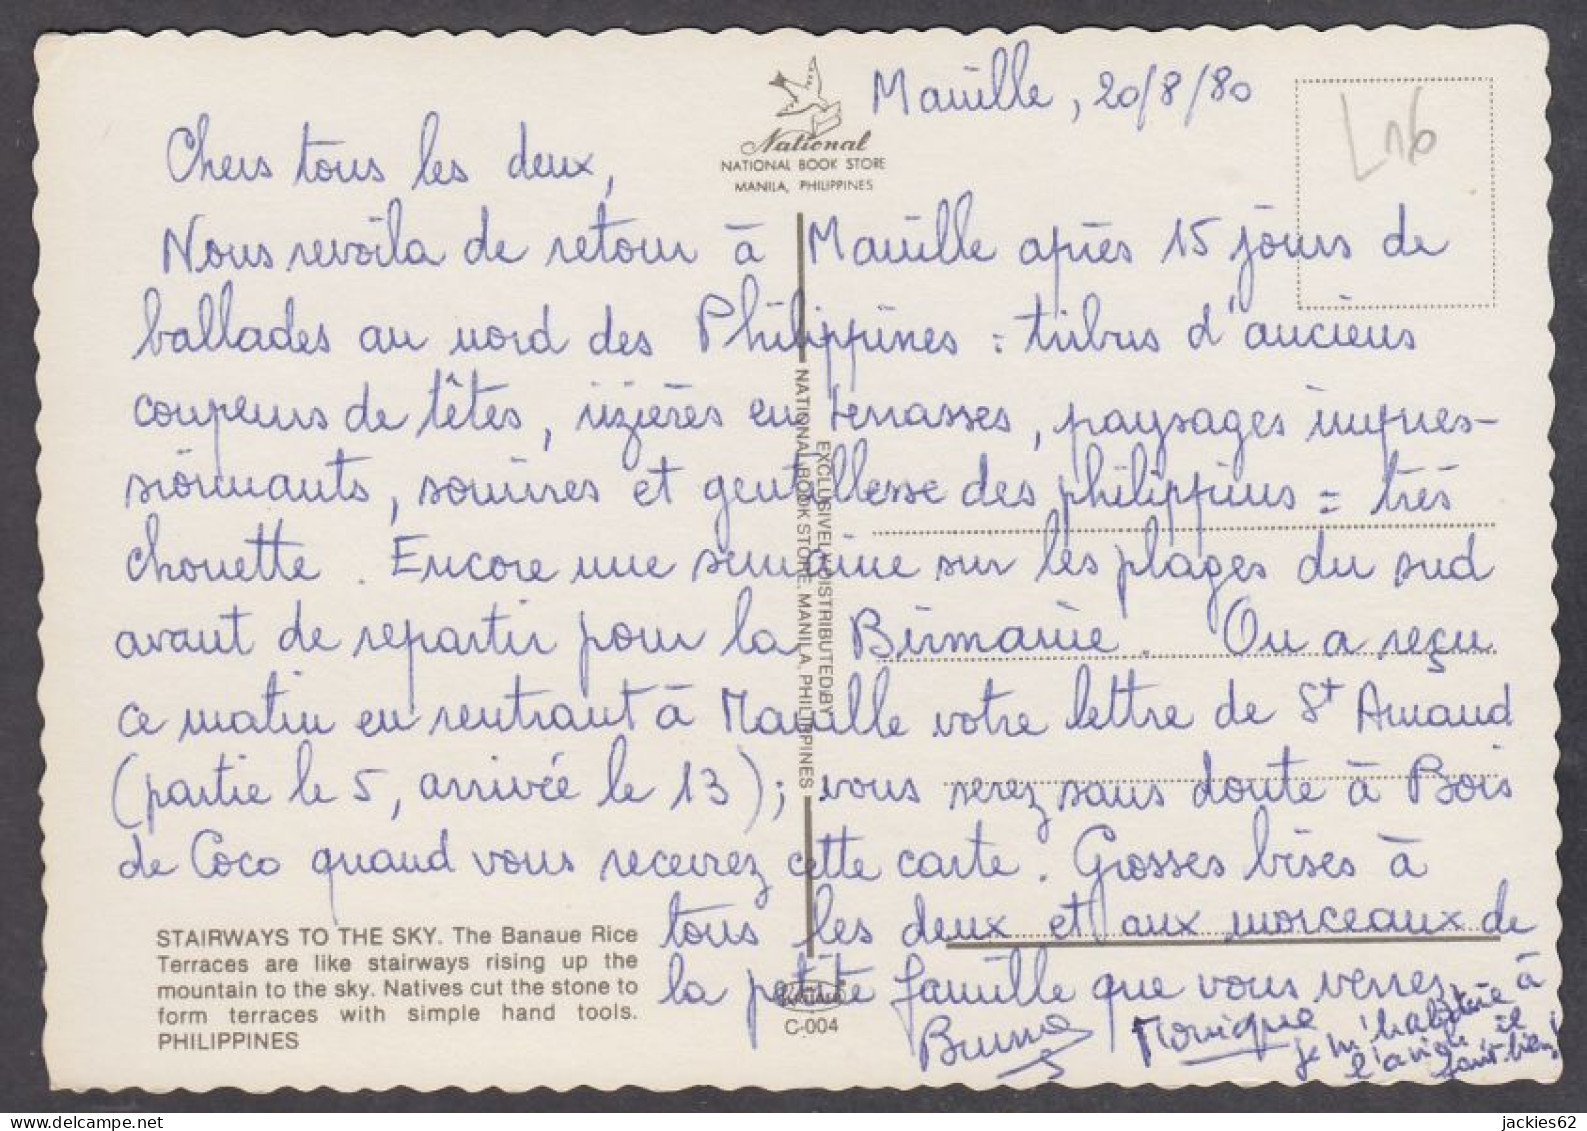 Manille, 20/8/80
L16
National
NATIONAL BOOK STORE
MANILA, PHILIPPINES
Chers tous les deux,
Nous revoila de retour à Manille après 15 jours de
ballades au nord des Philippines : tribus d'anciens
coupeurs de têtes, rizières en terrasses, paysages impres-
sionnants, sourires et gentillesse des philippins = très
chouette. Encore une semaine sur les plages du sud
avant de repartir pour la Birmanie. On a reçu
ce matin en rentrant à Manille votre lettre de St Amand
(partie le 5, arrivée le 13); vous serez sans doute à Bois
de Coco quand vous recevrez cette carte. Grosses bises à
tous les deux et aux morceaux de
la petite famille que vous verrez
Bruno Monique je m'habitue à
l'avion, il
faut bien!
EXCLUSIVELY DISTRIBUTED BY
NATIONAL BOOK STORE, MANILA, PHILIPPINES
STAIRWAYS TO THE SKY. The Banaue Rice
Terraces are like stairways rising up the
mountain to the sky. Natives cut the stone to
form terraces with simple hand tools.
PHILIPPINES
C-004
jackies62